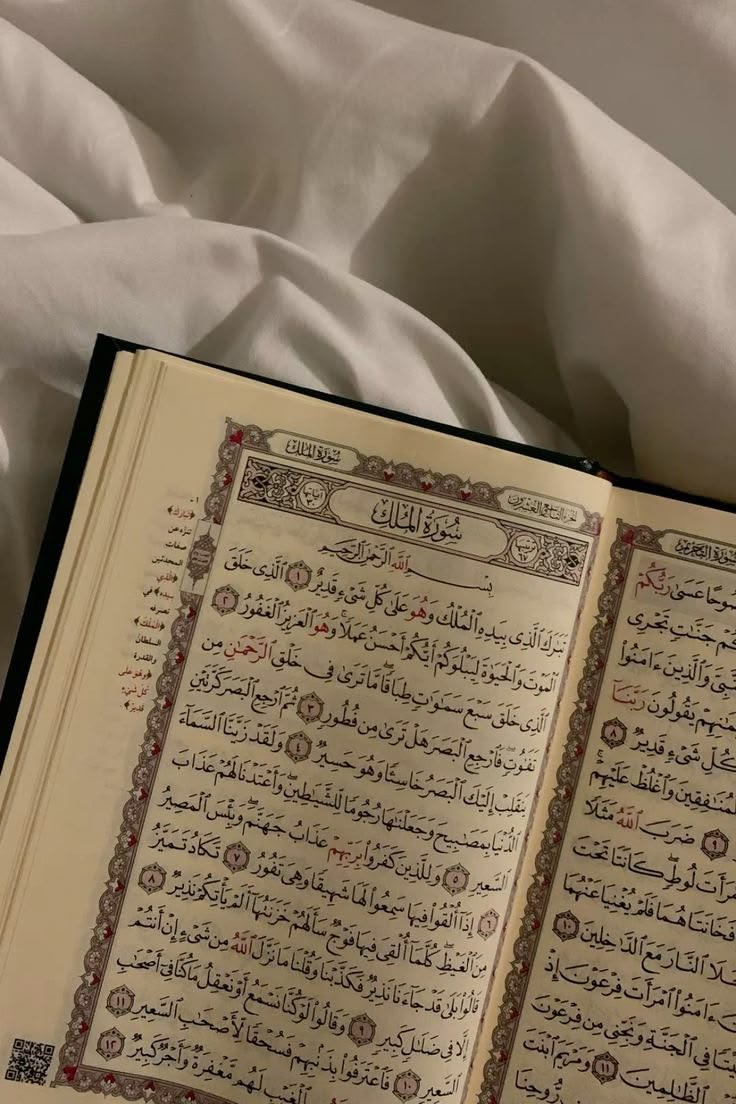 سُورَةُ التَّحْرِيمِ
عَسَىٰ رَبُّكُمْ
جَنَّٰتٍ تَجْرِى
وَٱلَّذِينَ ءَامَنُوا۟
يَقُولُونَ رَبَّنَآ
كُلِّ شَىْءٍ قَدِيرٌ ٨
ٱلْمُنَٰفِقِينَ وَٱغْلُظْ عَلَيْهِمْ
٩ ضَرَبَ ٱللَّهُ مَثَلًا
لُوطٍ كَانَتَا تَحْتَ
فَخَانَتَاهُمَا فَلَمْ يُغْنِيَا عَنْهُمَا
ٱلنَّارَ مَعَ ٱلدَّٰخِلِينَ ١٠
ءَامَنُوا۟ ٱمْرَأَتَ فِرْعَوْنَ إِذْ
بَيْتًا فِى ٱلْجَنَّةِ وَنَجِّنِى مِن فِرْعَوْنَ
ٱلظَّٰلِمِينَ ١١ وَمَرْيَمَ ٱبْنَتَ
رُّوحِنَا
الجزء التاسع والعشرون سُورَةُ المُلْكِ
سُورَةُ المُلْكِ
بِسْمِ ٱللَّهِ ٱلرَّحْمَٰنِ ٱلرَّحِيمِ
تَبَٰرَكَ ٱلَّذِى بِيَدِهِ ٱلْمُلْكُ وَهُوَ عَلَىٰ كُلِّ شَىْءٍ قَدِيرٌ ١ ٱلَّذِى خَلَقَ
ٱلْمَوْتَ وَٱلْحَيَوٰةَ لِيَبْلُوَكُمْ أَيُّكُمْ أَحْسَنُ عَمَلًا ۚ وَهُوَ ٱلْعَزِيزُ ٱلْغَفُورُ ٢
ٱلَّذِى خَلَقَ سَبْعَ سَمَٰوَٰتٍ طِبَاقًا ۖ مَّا تَرَىٰ فِى خَلْقِ ٱلرَّحْمَٰنِ مِن
تَفَٰوُتٍ ۖ فَٱرْجِعِ ٱلْبَصَرَ هَلْ تَرَىٰ مِن فُطُورٍ ٣ ثُمَّ ٱرْجِعِ ٱلْبَصَرَ كَرَّتَيْنِ
يَنقَلِبْ إِلَيْكَ ٱلْبَصَرُ خَاسِئًا وَهُوَ حَسِيرٌ ٤ وَلَقَدْ زَيَّنَّا ٱلسَّمَآءَ
ٱلدُّنْيَا بِمَصَٰبِيحَ وَجَعَلْنَٰهَا رُجُومًا لِّلشَّيَٰطِينِ ۖ وَأَعْتَدْنَا لَهُمْ عَذَابَ
ٱلسَّعِيرِ ٥ وَلِلَّذِينَ كَفَرُوا۟ بِرَبِّهِمْ عَذَابُ جَهَنَّمَ ۖ وَبِئْسَ ٱلْمَصِيرُ
٦ إِذَآ أُلْقُوا۟ فِيهَا سَمِعُوا۟ لَهَا شَهِيقًا وَهِىَ تَفُورُ ٧ تَكَادُ تَمَيَّزُ
مِنَ ٱلْغَيْظِ ۖ كُلَّمَآ أُلْقِىَ فِيهَا فَوْجٌ سَأَلَهُمْ خَزَنَتُهَآ أَلَمْ يَأْتِكُمْ نَذِيرٌ ٨
قَالُوا۟ بَلَىٰ قَدْ جَآءَنَا نَذِيرٌ فَكَذَّبْنَا وَقُلْنَا مَا نَزَّلَ ٱللَّهُ مِن شَىْءٍ إِنْ أَنتُمْ
إِلَّا فِى ضَلَٰلٍ كَبِيرٍ ٩ وَقَالُوا۟ لَوْ كُنَّا نَسْمَعُ أَوْ نَعْقِلُ مَا كُنَّا فِىٓ أَصْحَٰبِ
ٱلسَّعِيرِ ١٠ فَٱعْتَرَفُوا۟ بِذَنۢبِهِمْ فَسُحْقًا لِّأَصْحَٰبِ ٱلسَّعِيرِ ١١
ٱلْغَيْبِ لَهُم مَّغْفِرَةٌ وَأَجْرٌ كَبِيرٌ ١٢
١ -
﴿تبارك﴾
تنزّه عن
صفات
المحدثين
﴿الذي
بيده
الملك﴾
تصرفه
السلطان
والقدرة
﴿وهو على
كل شيء
قدير﴾